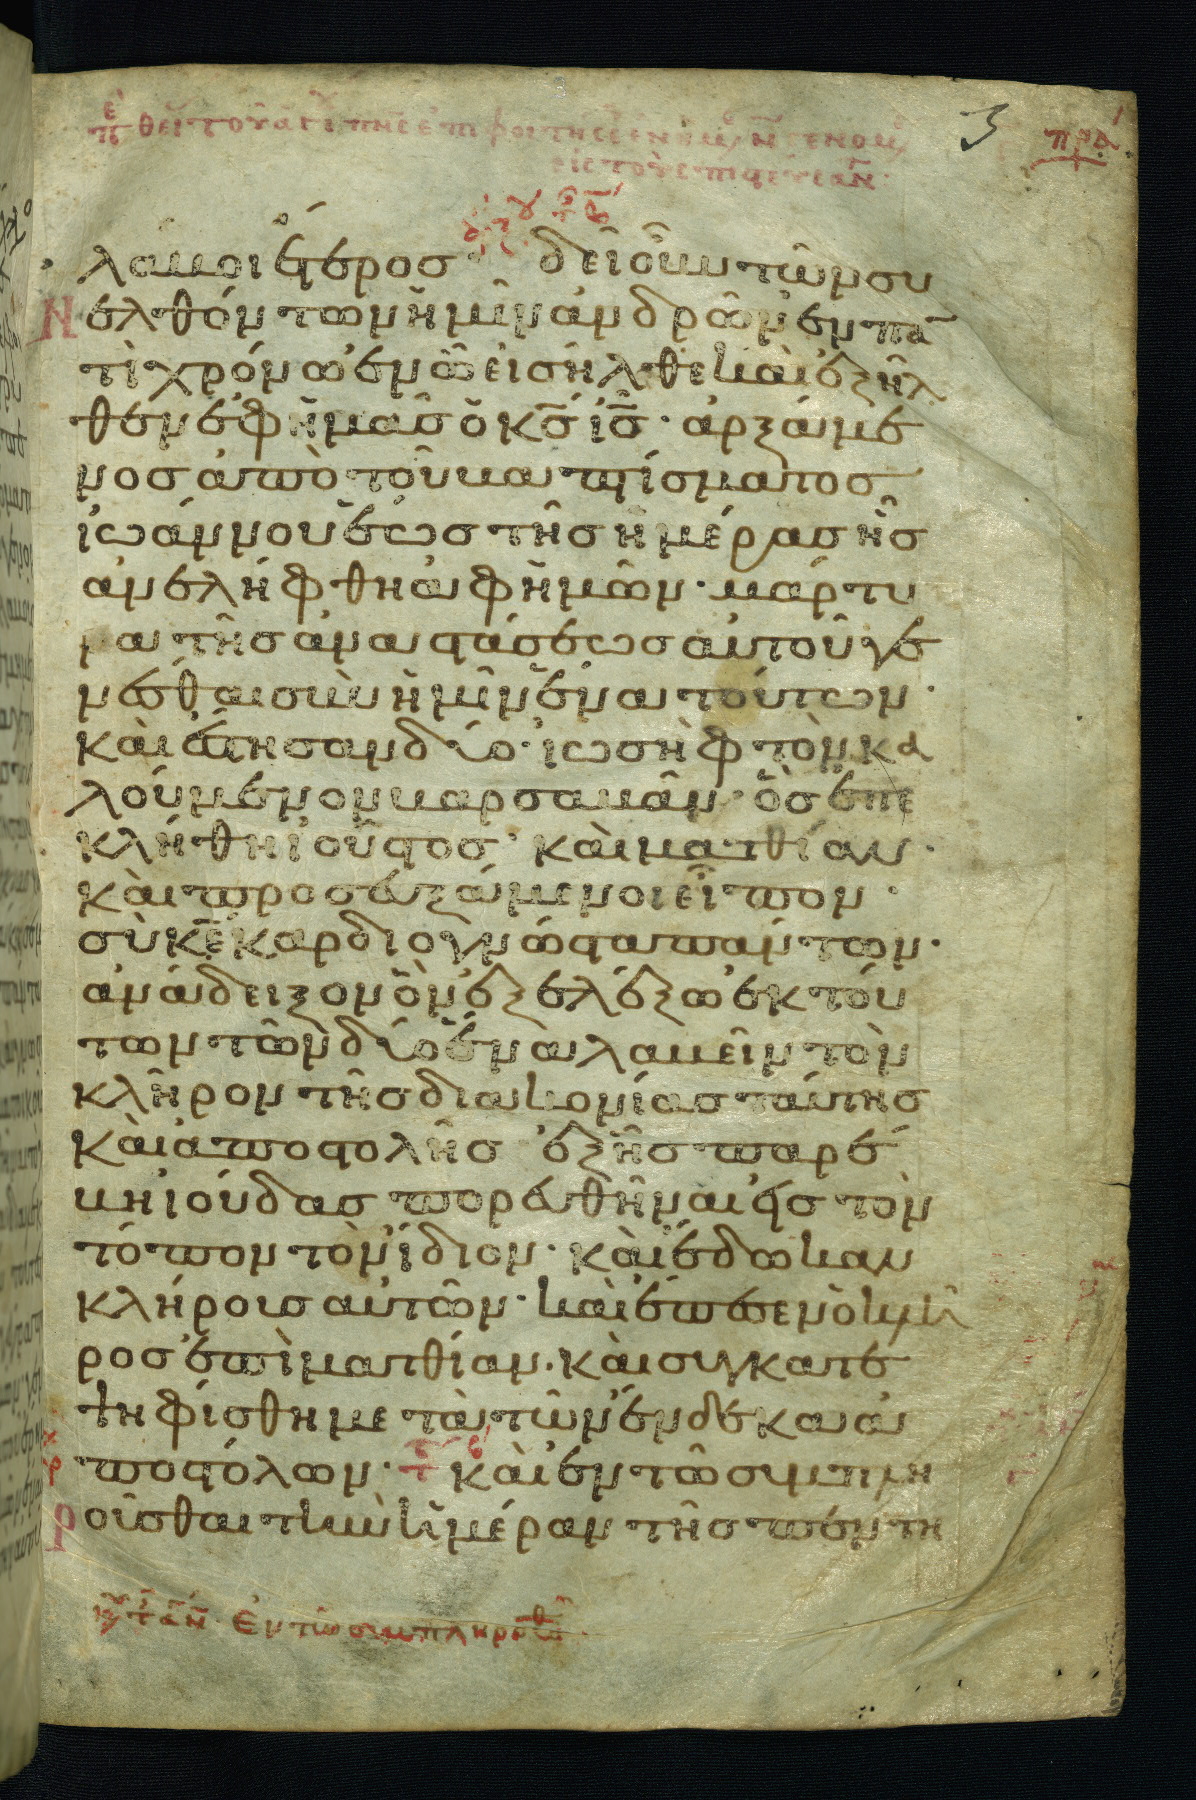 3
πρα
λάβοι ἕτερος δεῖ οὖν τῶν συ
ελθόντων ἡμῖν ἀνδρῶν ἐν πα
τὶ χρόνω ἐν ὧ εἰσῆλθε καὶ ἐξῆλ
θεν ἐφ ἡμᾶς ὁ κ̅ς̅ ι̅ς̅· ἀρξάμε
νος ἀπὸ τοῦ βαπτίσματος
ἰωάννου ἕως τῆς ἡμέρας ἧς
ἀνελήφθη ἀφ ἡμῶν· μάρτυ
ρα τῆς ἀναστάσεως αὐτοῦ γε
νέσθαι σὺν ἡμῖν ἕνα τούτων·
καὶ ἔστησαν δύο· ἰωσὴφ τὸν κα
λούμενον βαρσαβᾶν· ὃς ἐπε
κλήθη ἰοῦστος· καὶ ματθίαν·
καὶ προσευξάμενοι εἶπον·
σὺ κ̅ε̅ καρδιογνῶστα πάντων·
ἀνάδειξον ὃν ἐξελέξω ἐκ τού
των τῶν δύο ἕνα λαβεῖν τὸν
κλῆρον τῆς διακονίας ταύτης
καὶ ἀποστολῆς ἐξ ἧς παρέ
βη ἰούδας πορευθῆναι εἰς τὸν
τόπον τὸν ἴδιον· καὶ ἔδωκαν
κλήροις αὐτῶν· καὶ ἔπεσεν ὁ κλῆ
ρος ἐπὶ ματθίαν· καὶ συγκατε
ψηφίσθη μετὰ τῶν ἕνδεκα ἀ
ποστόλων· καὶ ἐν τῶ συμπλη
ροῦσθαι τὴν ἡμέραν τῆς πεντη
Ἐν τῶ συμπληροῦσθ